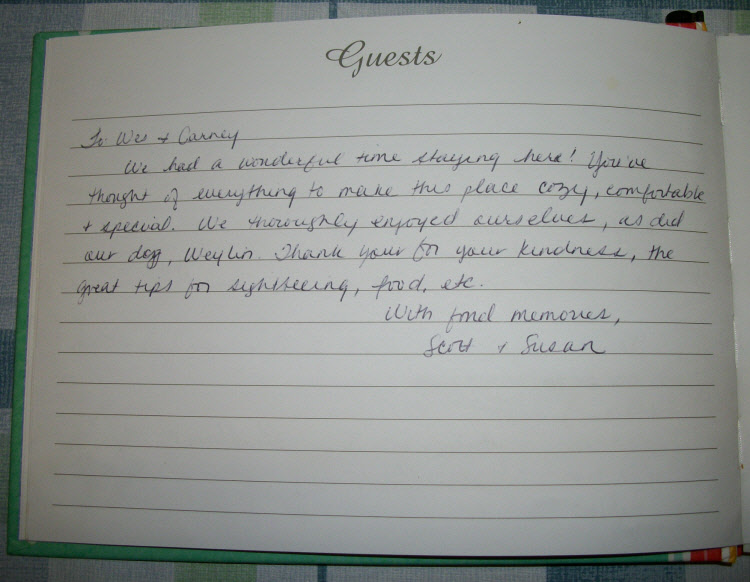 Guests
To Wes & Carney
We had a wonderful time staying here! You've
thought of everything to make this place cozy, comfortable
& special. We thoroughly enjoyed ourselves, as did
our dog, Weylin. Thank your for your kindness, the
great tips for sightseeing, food, etc.
With fond memories,
Scott & Susan